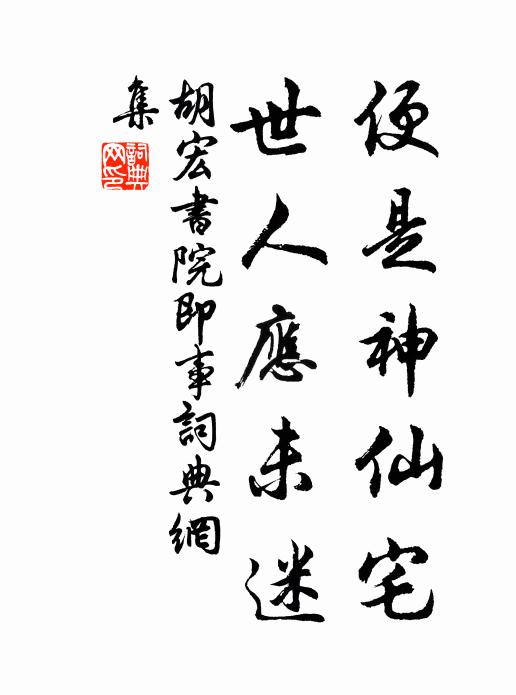 便是神仙宅
世人應未迷
胡宏書院即事詞典網
集
詞典
网印